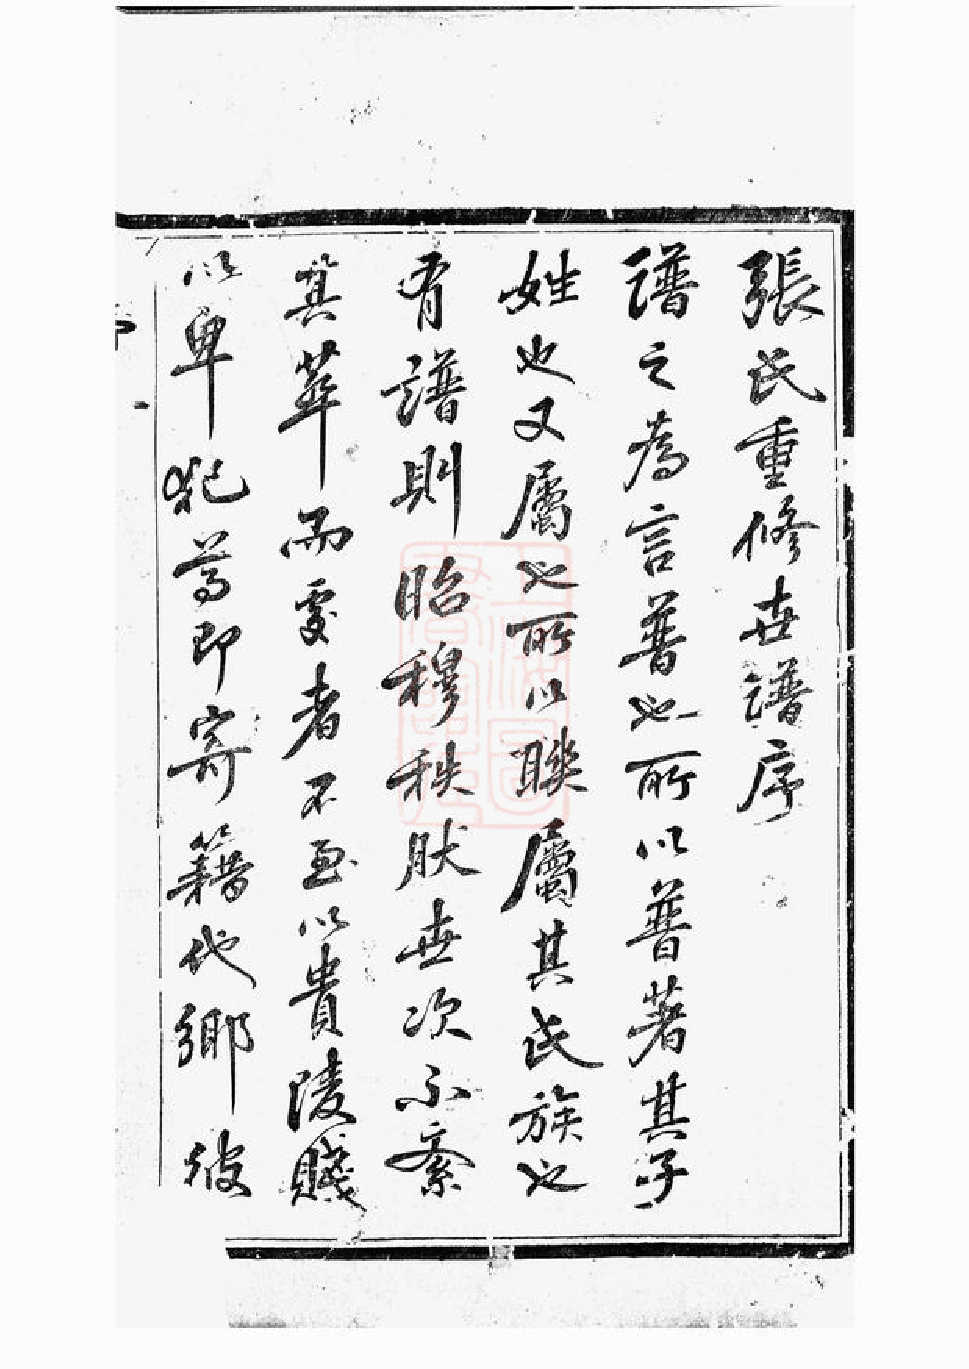 張氏重修世譜序
譜之為言普也所以普著其子
姓也又屬也所以聯屬其氏族也
有譜則昭穆秩肰世次不紊
萃而處者不至以貴陵賤
以卑犯尊即寄籍他鄉彼